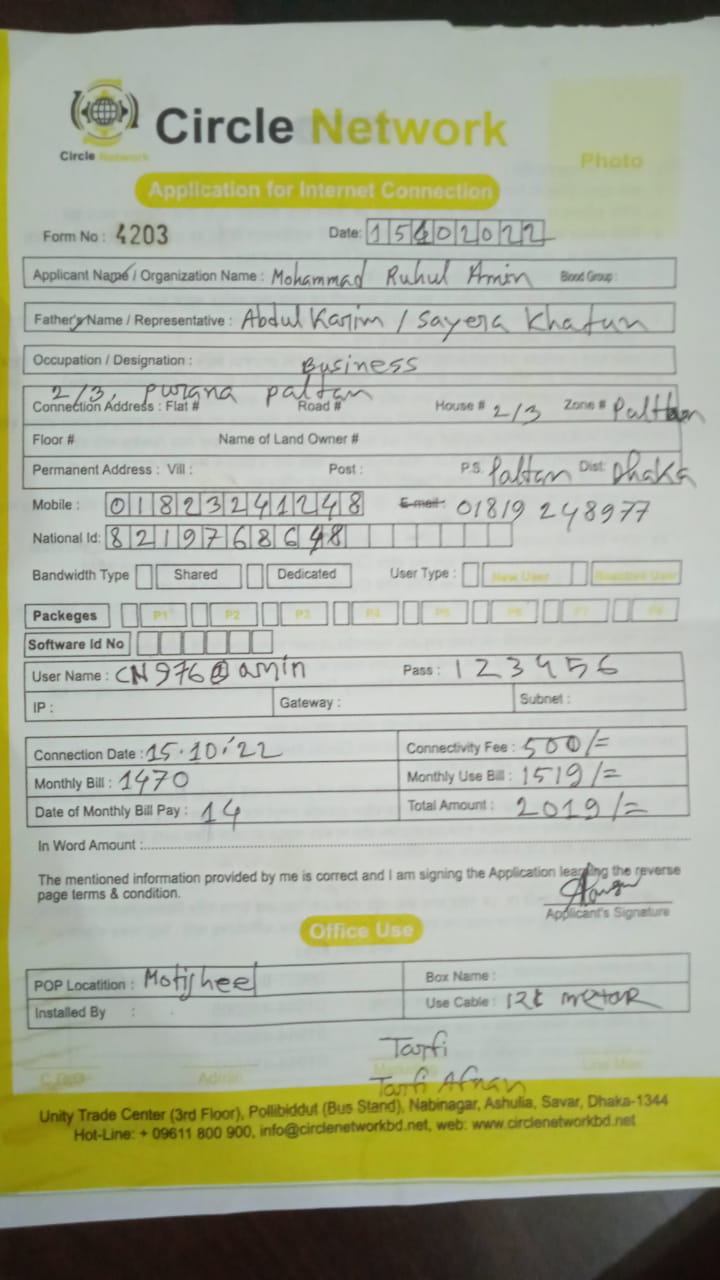 Circle Network
Circle Network
Photo
Application for Internet Connection
Form No : 4203 Date: 15102022
Applicant Name / Organization Name : Mohammad Ruhul Amin Blood Group :
Father's Name / Representative : Abdul Karim / Sayera Khatun
Occupation / Designation : Business
2/3, purana paltan
Connection Address : Flat # Road # House # 2/3 Zone # Paltan
Floor # Name of Land Owner #
Permanent Address : Vill : Post : P.S. Paltan Dist: Dhaka
Mobile : 01823241248 E-mail: 01819 248977
National Id: 8219768648
Bandwidth Type Shared Dedicated User Type : New User Reactive User
Packeges P1 P2 P3 P4 P5 P6 P7 P8
Software Id No
User Name : CN976@amin Pass : 123456
IP : Gateway : Subnet :
Connection Date : 15.10.'22 Connectivity Fee : 500/=
Monthly Bill : 1470 Monthly Use Bill : 1519/=
Date of Monthly Bill Pay : 14 Total Amount : 2019/=
In Word Amount :
The mentioned information provided by me is correct and I am signing the Application learning the reverse
page terms & condition.
Applicant's Signature
Office Use
POP Locatition : Motijheel Box Name :
Installed By : Use Cable : metar
Tarfi
Admin
Tarfi Afnan
Unity Trade Center (3rd Floor), Pollibiddut (Bus Stand), Nabinagar, Ashulia, Savar, Dhaka-1344
Hot-Line: + 09611 800 900, info@circlenetworkbd.net, web: www.circlenetworkbd.net